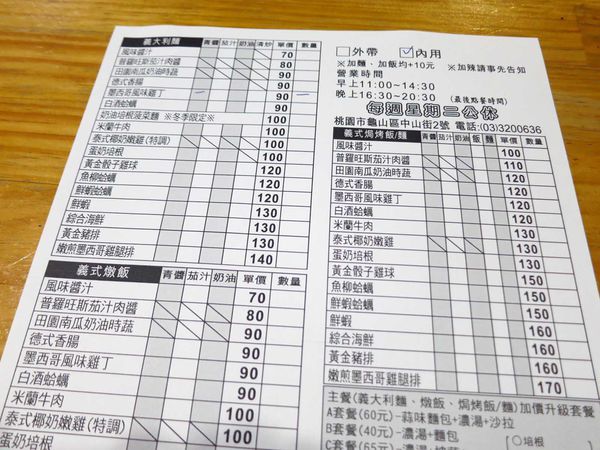 義大利麵 青醬 茄汁 奶油 清炒 單價 數量
風味醬汁 70
普羅旺斯茄汁肉醬 80
田園南瓜奶油時蔬 90
德式香腸 90
墨西哥風味雞丁 90
白酒蛤蠣 90
奶油培根菠菜麵 ※冬季限定※ 100
米蘭牛肉 100
泰式椰奶嫩雞(特調) 100
蛋奶培根 100
黃金骰子雞球 120
魚柳蛤蠣 120
鮮蝦蛤蠣 120
鮮蝦 130
綜合海鮮 130
黃金豬排 130
嫩煎墨西哥雞腿排 140
義式燉飯 青醬 茄汁 奶油 單價 數量
風味醬汁 70
普羅旺斯茄汁肉醬 80
田園南瓜奶油時蔬 90
德式香腸 90
墨西哥風味雞丁 90
白酒蛤蠣 90
米蘭牛肉 100
泰式椰奶嫩雞(特調) 100
蛋奶培根
□外帶 ☑內用
※加麵、加飯均+10元 ※加辣請事先告知
營業時間
早上11:00~14:30
晚上16:30~20:30 (最後點餐時間)
每週星期二公休
桃園市龜山區中山街2號 電話:(03)3200636
義式焗烤飯/麵 青醬 茄汁 奶油 單價 數量
風味醬汁 100
普羅旺斯茄汁肉醬 110
田園南瓜奶油時蔬 120
德式香腸 120
墨西哥風味雞丁 120
白酒蛤蠣 120
米蘭牛肉 130
泰式椰奶嫩雞 130
蛋奶培根 130
黃金骰子雞球 150
魚柳蛤蠣 150
鮮蝦蛤蠣 150
鮮蝦 160
綜合海鮮 160
黃金豬排 160
嫩煎墨西哥雞腿排 170
主餐(義大利麵、燉飯、焗烤飯/麵)加價升級套餐
A套餐(60元)-蒜味麵包+濃湯+沙拉
B套餐(40元)-濃湯+麵包
C套餐(65元)-濃湯
○培根